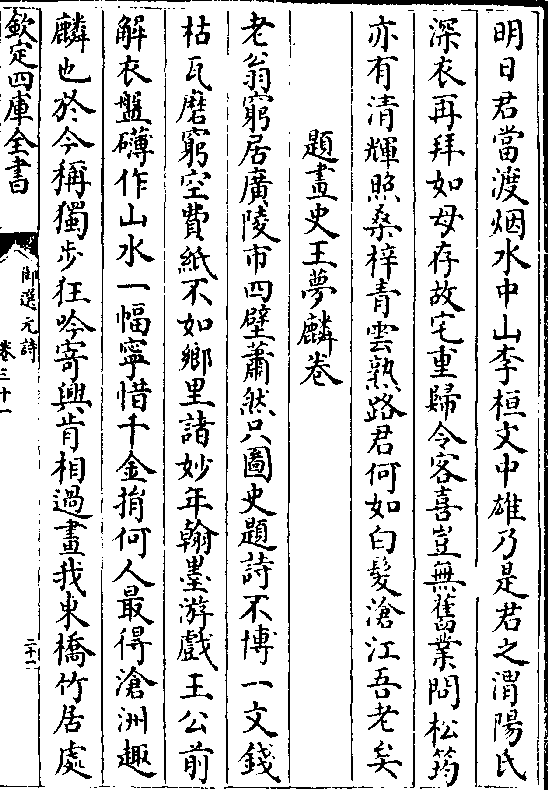 明日君當渡烟水中山李桓文中雄乃是君之渭陽氏
深衣再拜如母存故宅重歸令客喜豈無舊業問松筠
亦有清輝照桑梓青雲熟路君何如白髮滄江吾老矣
題畫史王夢麟卷
老翁窮居廣陵市四壁蕭然只圖史題詩不博一文錢
枯瓦磨窮空費紙不如鄉里諸妙年翰墨游戲王公前
解衣盤礴作山水一幅寧惜千金捐何人最得滄洲趣
麟也於今稱獨步狂吟寄興肯相過畫我東橋竹居處
欽定四庫全書
御選元詩
卷三十一
二十一